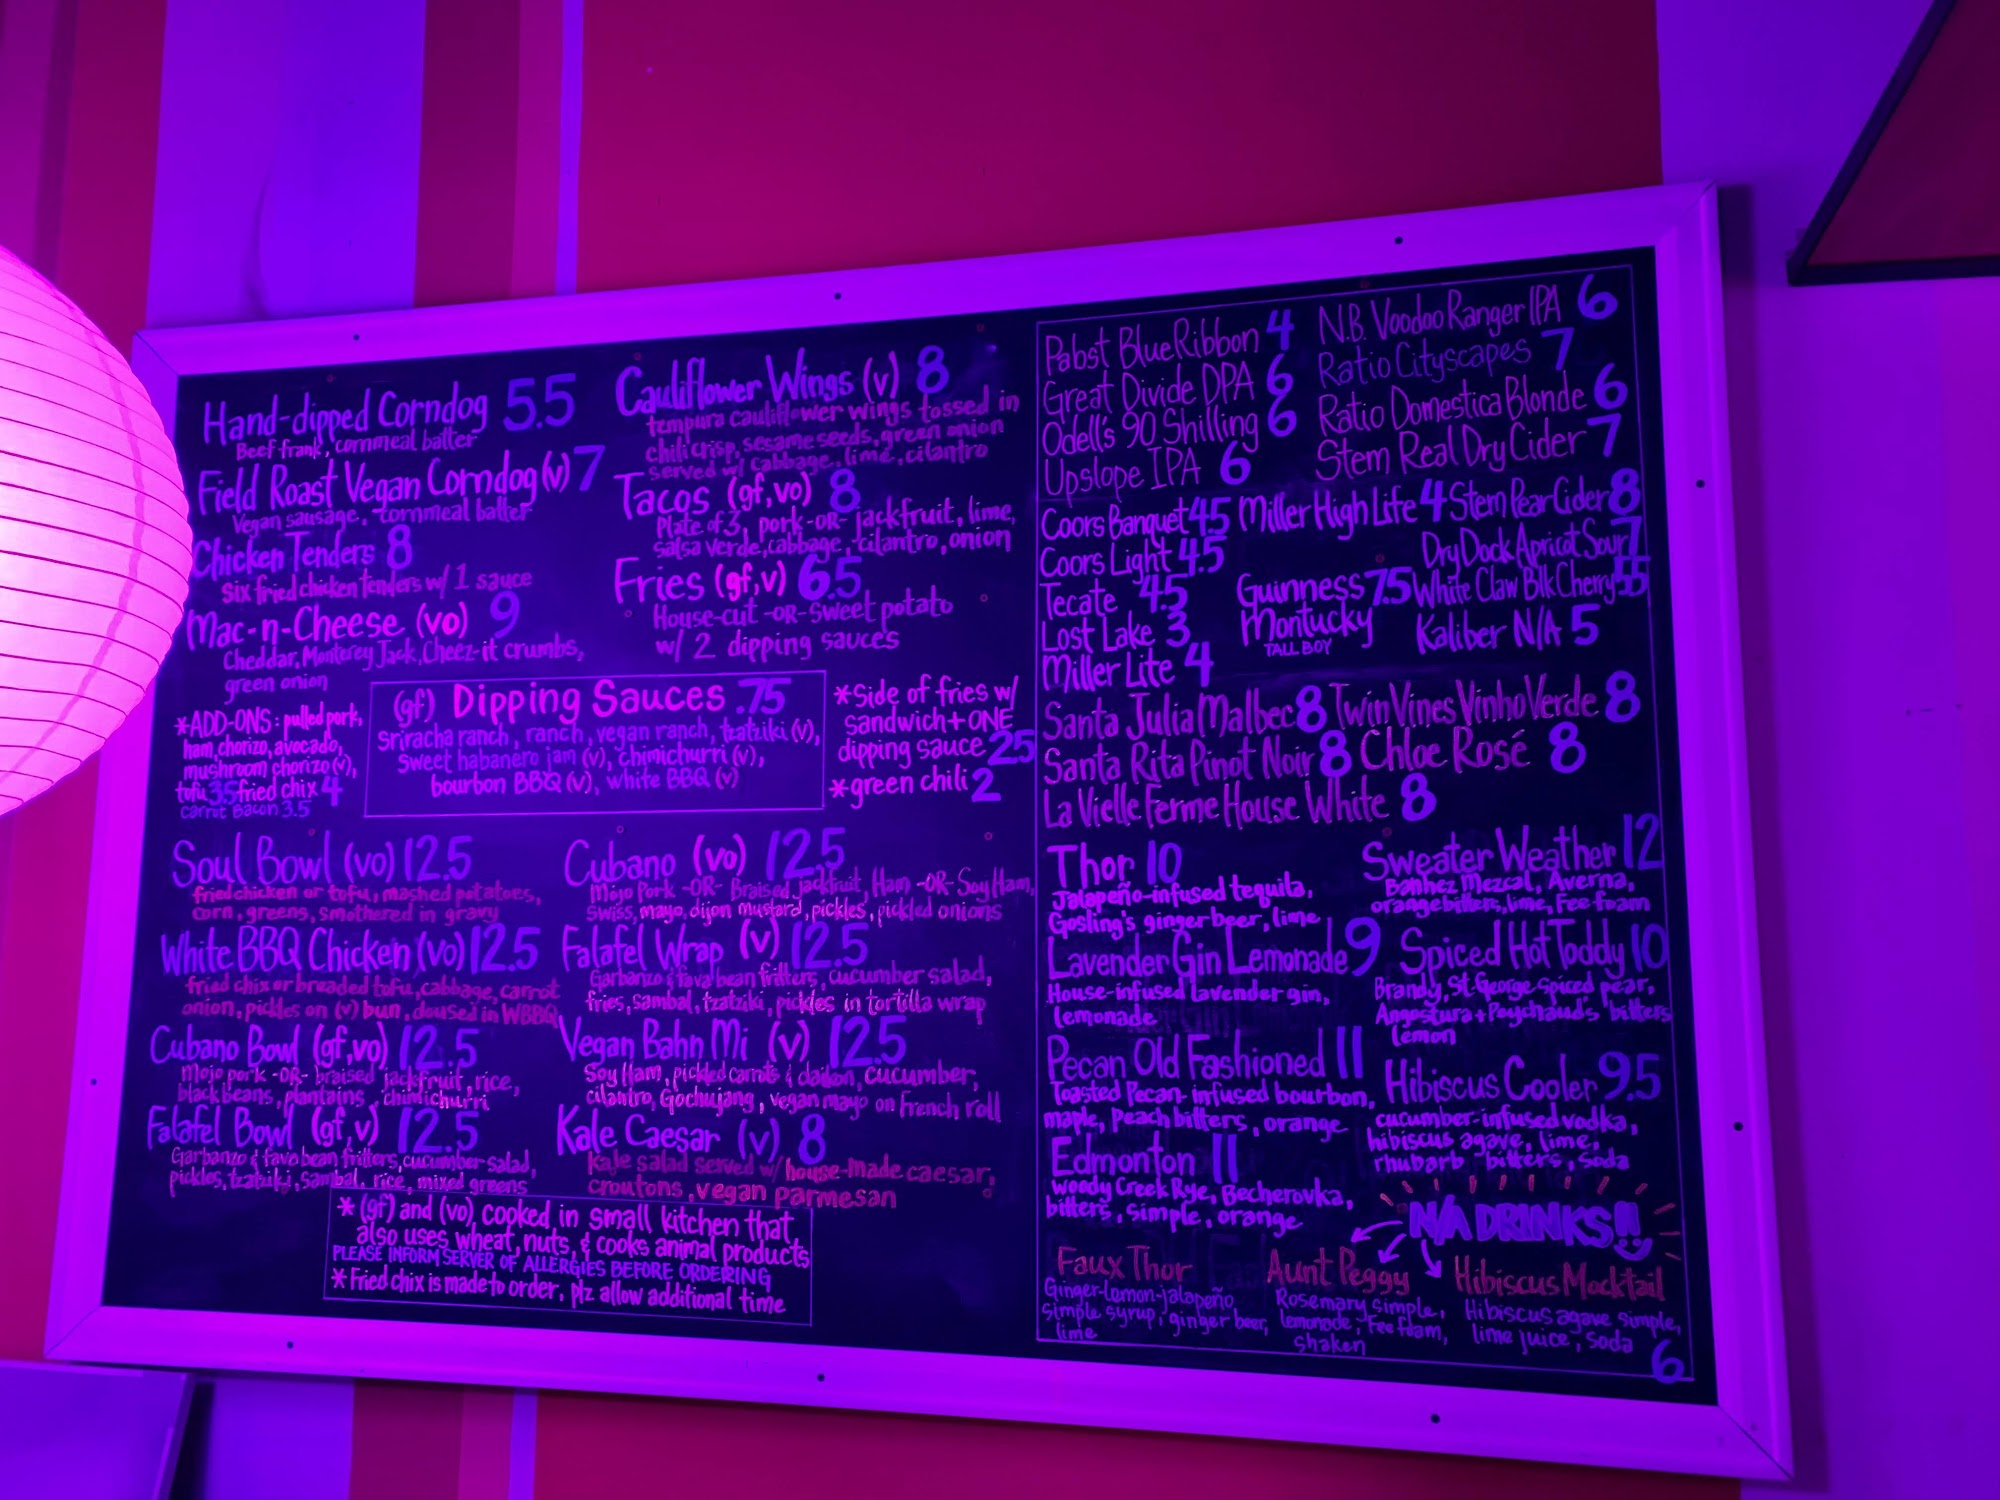 Hand-dipped Corndog 5.5
Beef frank, cornmeal batter
Field Roast Vegan Corndog (v) 7
Vegan sausage, cornmeal batter
Chicken Tenders 8
Six fried chicken tenders w/ 1 sauce
Mac-n-Cheese (vo) 9
Cheddar, Monterey Jack, Cheez-it crumbs,
green onion
*ADD-ONS: pulled pork,
ham, chorizo, avocado,
mushroom chorizo (v),
tofu 3.5 fried chix 4
carrot Bacon 3.5
Cauliflower Wings (v) 8
tempura cauliflower wings tossed in
chili crisp, sesame seeds, green onion
served w/ cabbage, lime, cilantro
Tacos (gf, vo) 8
Plate of 3, pork -OR- jackfruit, lime,
salsa verde, cabbage, cilantro, onion
Fries (gf, v) 6.5
House-cut -OR- Sweet potato
w/ 2 dipping sauces
(gf) Dipping Sauces .75
Sriracha ranch, ranch, vegan ranch, tzatziki (v),
sweet habanero jam (v), chimichurri (v),
bourbon BBQ (v), white BBQ (v)
*Side of fries w/
sandwich + ONE
dipping sauce 2.5
*green chili 2
Soul Bowl (vo) 12.5
fried chicken or tofu, mashed potatoes,
corn, greens, smothered in gravy
White BBQ Chicken (vo) 12.5
fried chix or breaded tofu, cabbage, carrot
onion, pickles on (v) bun, doused in WBBQ
Cubano Bowl (gf, vo) 12.5
Mojo pork -OR- braised jackfruit, rice,
black beans, plantains, chimichurri
Falafel Bowl (gf, v) 12.5
Garbanzo & fava bean fritters, cucumber salad,
pickles, tzatziki, sambal, rice, mixed greens
Cubano (vo) 12.5
Mojo Pork -OR- Braised Jackfruit, Ham -OR- Soy Ham,
Swiss, mayo, dijon mustard, pickles, pickled onions
Falafel Wrap (v) 12.5
Garbanzo & fava bean fritters, cucumber salad,
fries, sambal, tzatziki, pickles in tortilla wrap
Vegan Bahn Mi (v) 12.5
Soy Ham, pickled carrots & daikon, cucumber,
cilantro, Gochujang, vegan mayo on french roll
Kale Caesar (v) 8
Kale salad served w/ house-made caesar,
croutons, vegan parmesan
* (gf) and (vo) cooked in small kitchen that
also uses wheat, nuts, & cooks animal products
PLEASE INFORM SERVER OF ALLERGIES BEFORE ORDERING
* Fried chix is made to order, plz allow additional time
Pabst Blue Ribbon 4
Great Divide DPA 6
Odell's 90 Shilling 6
Upslope IPA 6
N.B. Voodoo Ranger IPA 6
Ratio Cityscapes 7
Ratio Domestica Blonde 6
Stem Real Dry Cider 7
Coors Banquet 4.5 Miller High Life 4 Stem Pear Cider 8
Coors Light 4.5 Dry Dock Apricot Sour 7
Tecate 4.5 Guinness 7.5 White Claw Blk Cherry 5.5
Lost Lake 3 Montucky Kaliber N/A 5
TALL BOY
Miller Lite 4
Santa Julia Malbec 8 Twin Vines Vinho Verde 8
Santa Rita Pinot Noir 8 Chloe Rosé 8
La Vielle Ferme House White 8
Thor 10
Jalapeño-infused tequila,
Gosling's ginger beer, lime
Lavender Gin Lemonade 9
House-infused lavender gin,
lemonade
Pecan Old Fashioned 11
Toasted Pecan-infused bourbon,
maple, Peach bitters, orange
Edmonton 11
Woody Creek Rye, Becherovka,
bitters, simple, orange
Sweater Weather 12
Banhez Mezcal, Averna,
orange bitters, lime, Fee foam
Spiced Hot Toddy 10
Brandy, St. George Spiced pear,
Angostura + Peychaud's bitters
lemon
Hibiscus Cooler 9.5
cucumber-infused vodka,
hibiscus agave, lime,
rhubarb bitters, soda
N/A DRINKS!!
Faux Thor
Ginger-lemon-jalapeño
simple syrup, ginger beer,
lime
Aunt Peggy
Rosemary simple,
lemonade, Fee foam,
shaken
Hibiscus Mocktail
Hibiscus agave simple,
lime juice, soda
6